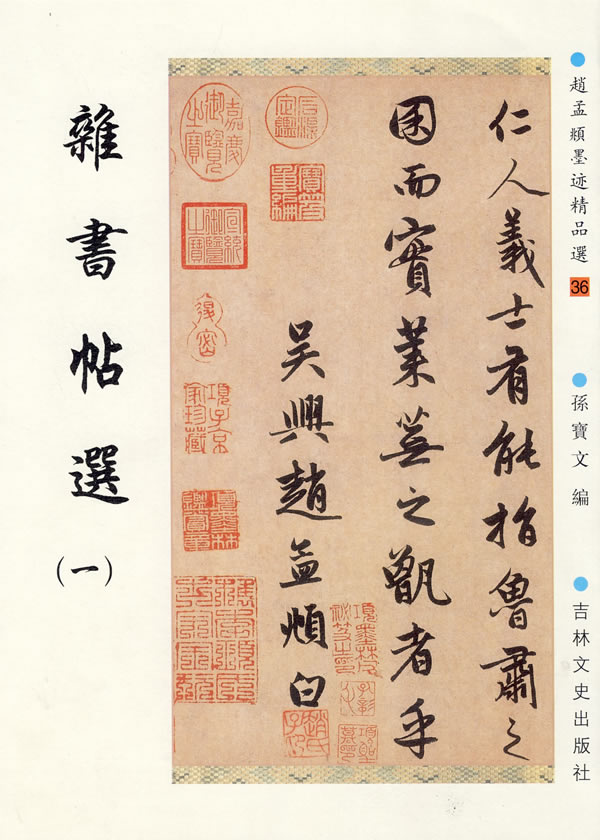 趙孟頫墨迹精品選 36
孫寶文 編
吉林文史出版社
仁人義士有能指魯肅之
囷而實萊蕪之甑者乎
吳興趙孟頫白
石渠定鑑
寶笈重編
趙氏子昂
嘉慶御覽之寶
宣統御覽之寶
項子京家珍藏
項墨林鑑賞章
雜書帖選
(一)